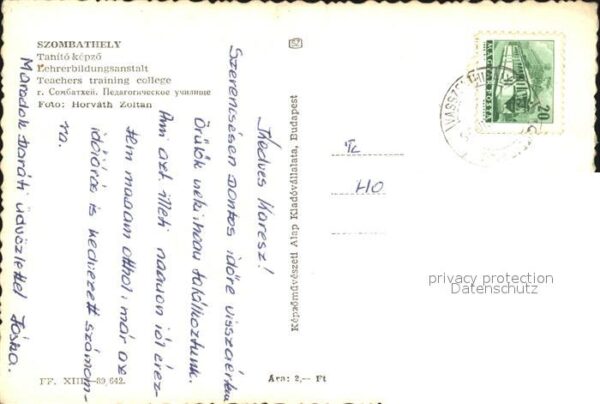 SZOMBATHELY
Tanítóképző
Lehrerbildungsanstalt
Teachers training college
г. Сомбатхей. Педагогическое училище
Foto: Horváth Zoltán
Kedves Karesz!
Szerencsésen pontos időre visszaértem
Örülök neki hogy találkoztunk.
Ami azt illeti nagyon jól érez-
tem magam otthol már az
időjárás is kedvezett számom-
ra.
Maradok baráti üdvözlettel Jóska.
FF. XIII—89,642.
Ára: 2,— Ft
Képzőművészeti Alap Kiadóvállalata, Budapest
MAGYAR POSTA
20
privacy protection
Datenschutz